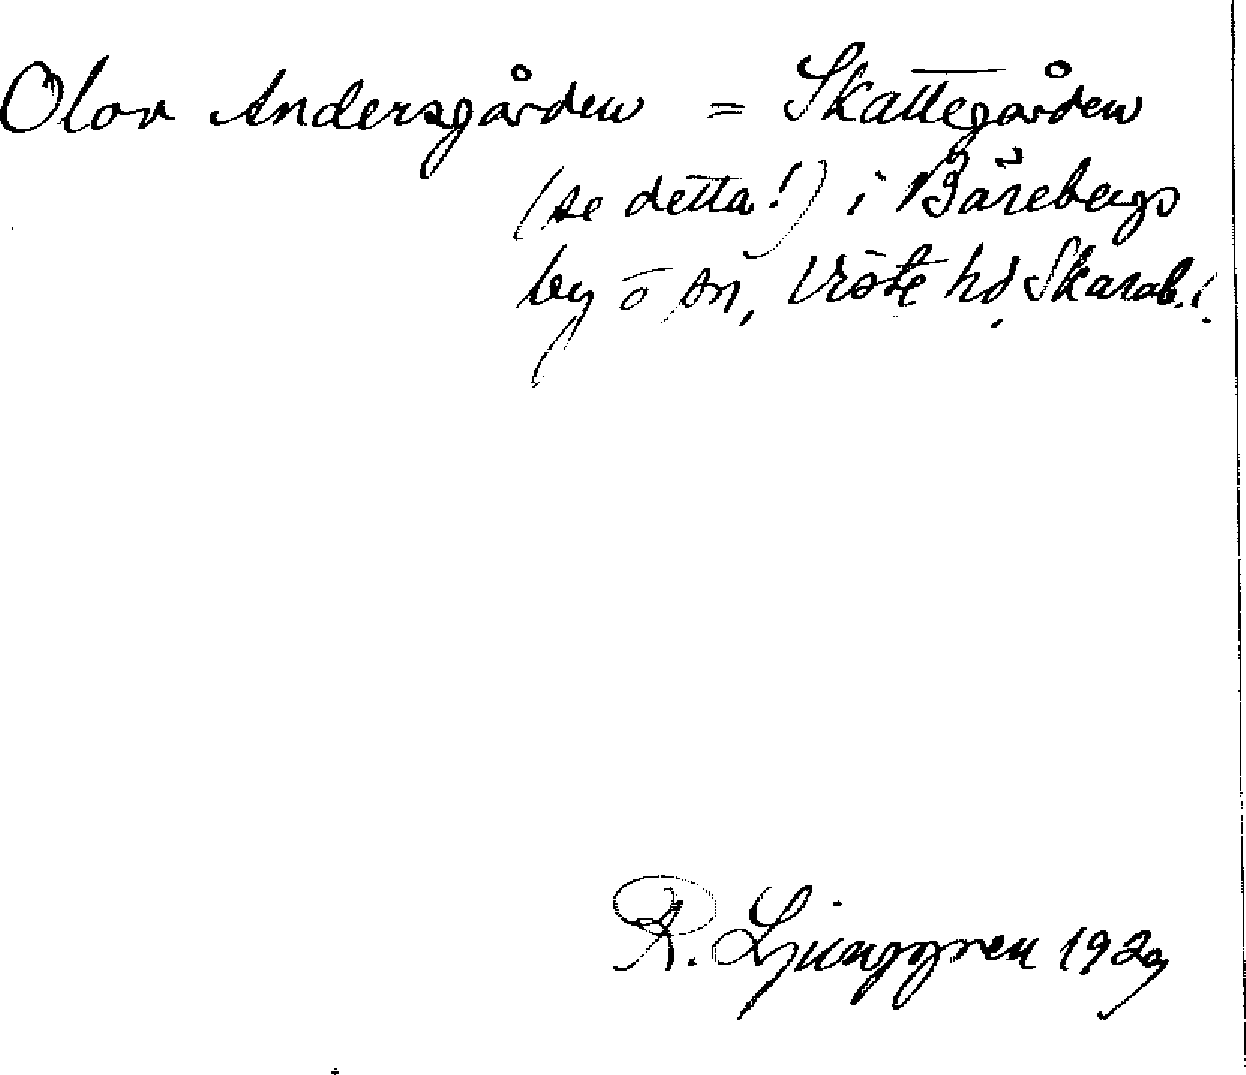 Olov Andersgården = Skattegården
(se detta!) i Bärebergs
by o sn, Viste hd Skarab.l.
R. Ljunggren 1929